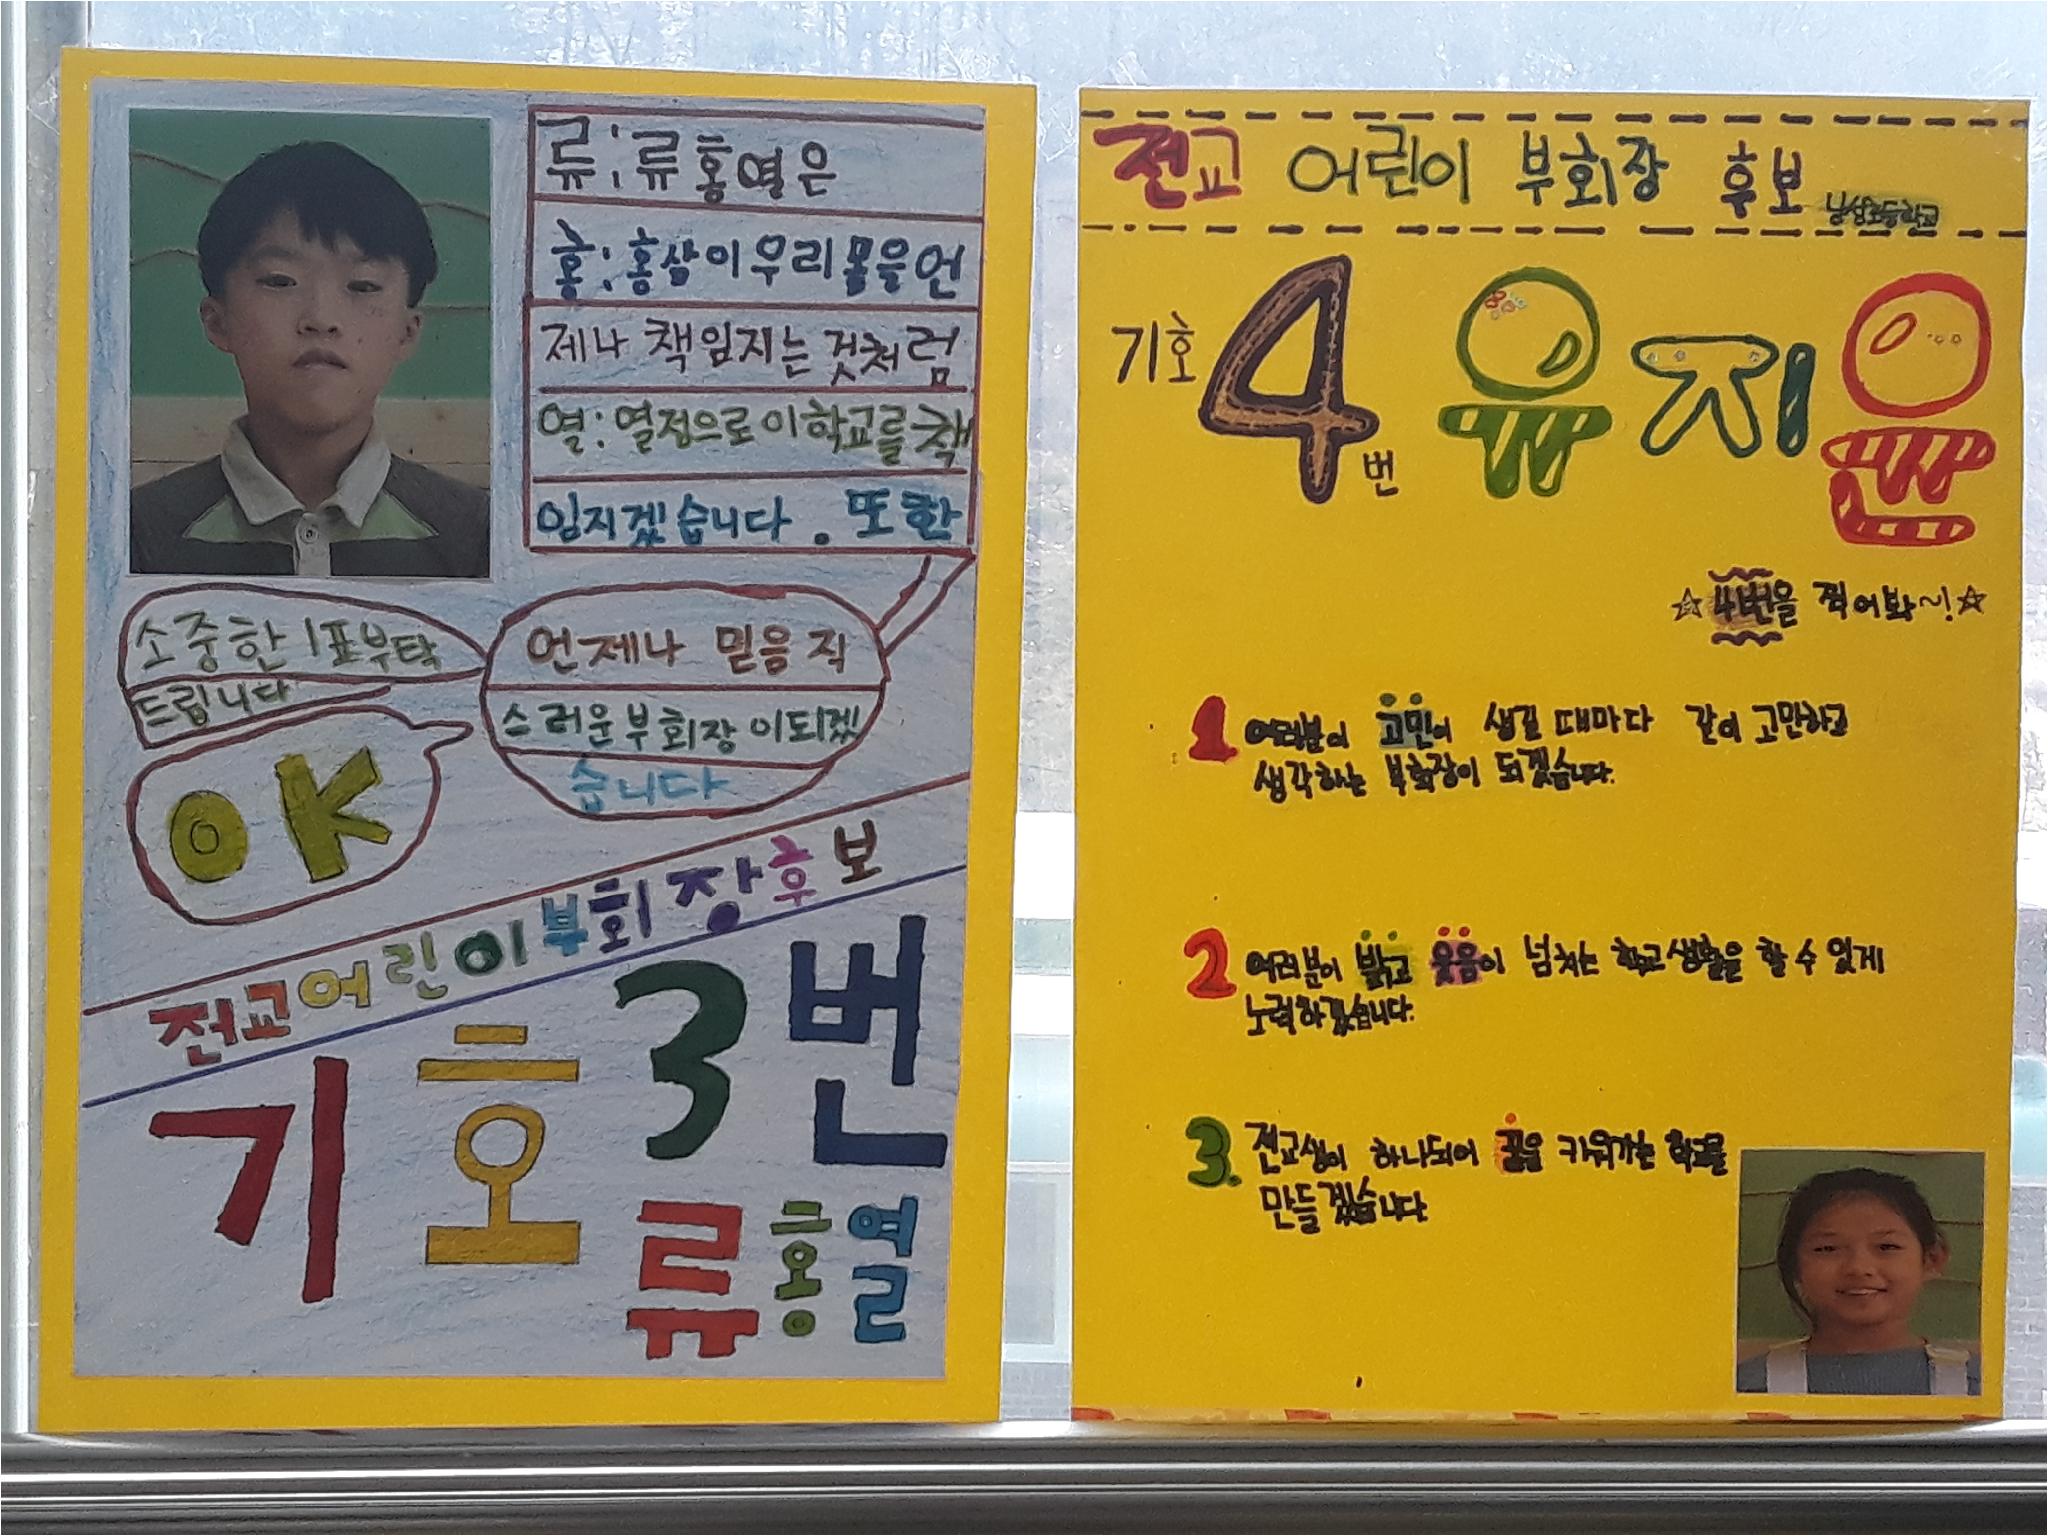 류:류홍열은
홍:홍삼이우리몸을언
제나 책임지는것처럼
열:열정으로이학교를책
임지겠습니다. 또한
소중한1표부탁
드립니다
언제나 믿음직
스러운부회장이되겠
습니다
OK
전교어린이부회장후보
기호3번
류홍열
전교 어린이 부회장 후보 남성초등학교
기호 4번 유지윤
☆4번을 찍어봐~!☆
1 여러분이 고민이 생길 때마다 같이 고민하고
생각하는 부회장이 되겠습니다.
2 여러분이 밝고 웃음이 넘치는 학교생활을 할 수 있게
노력하겠습니다.
3. 전교생이 하나되어 꿈을 키워가는 학교를
만들겠습니다